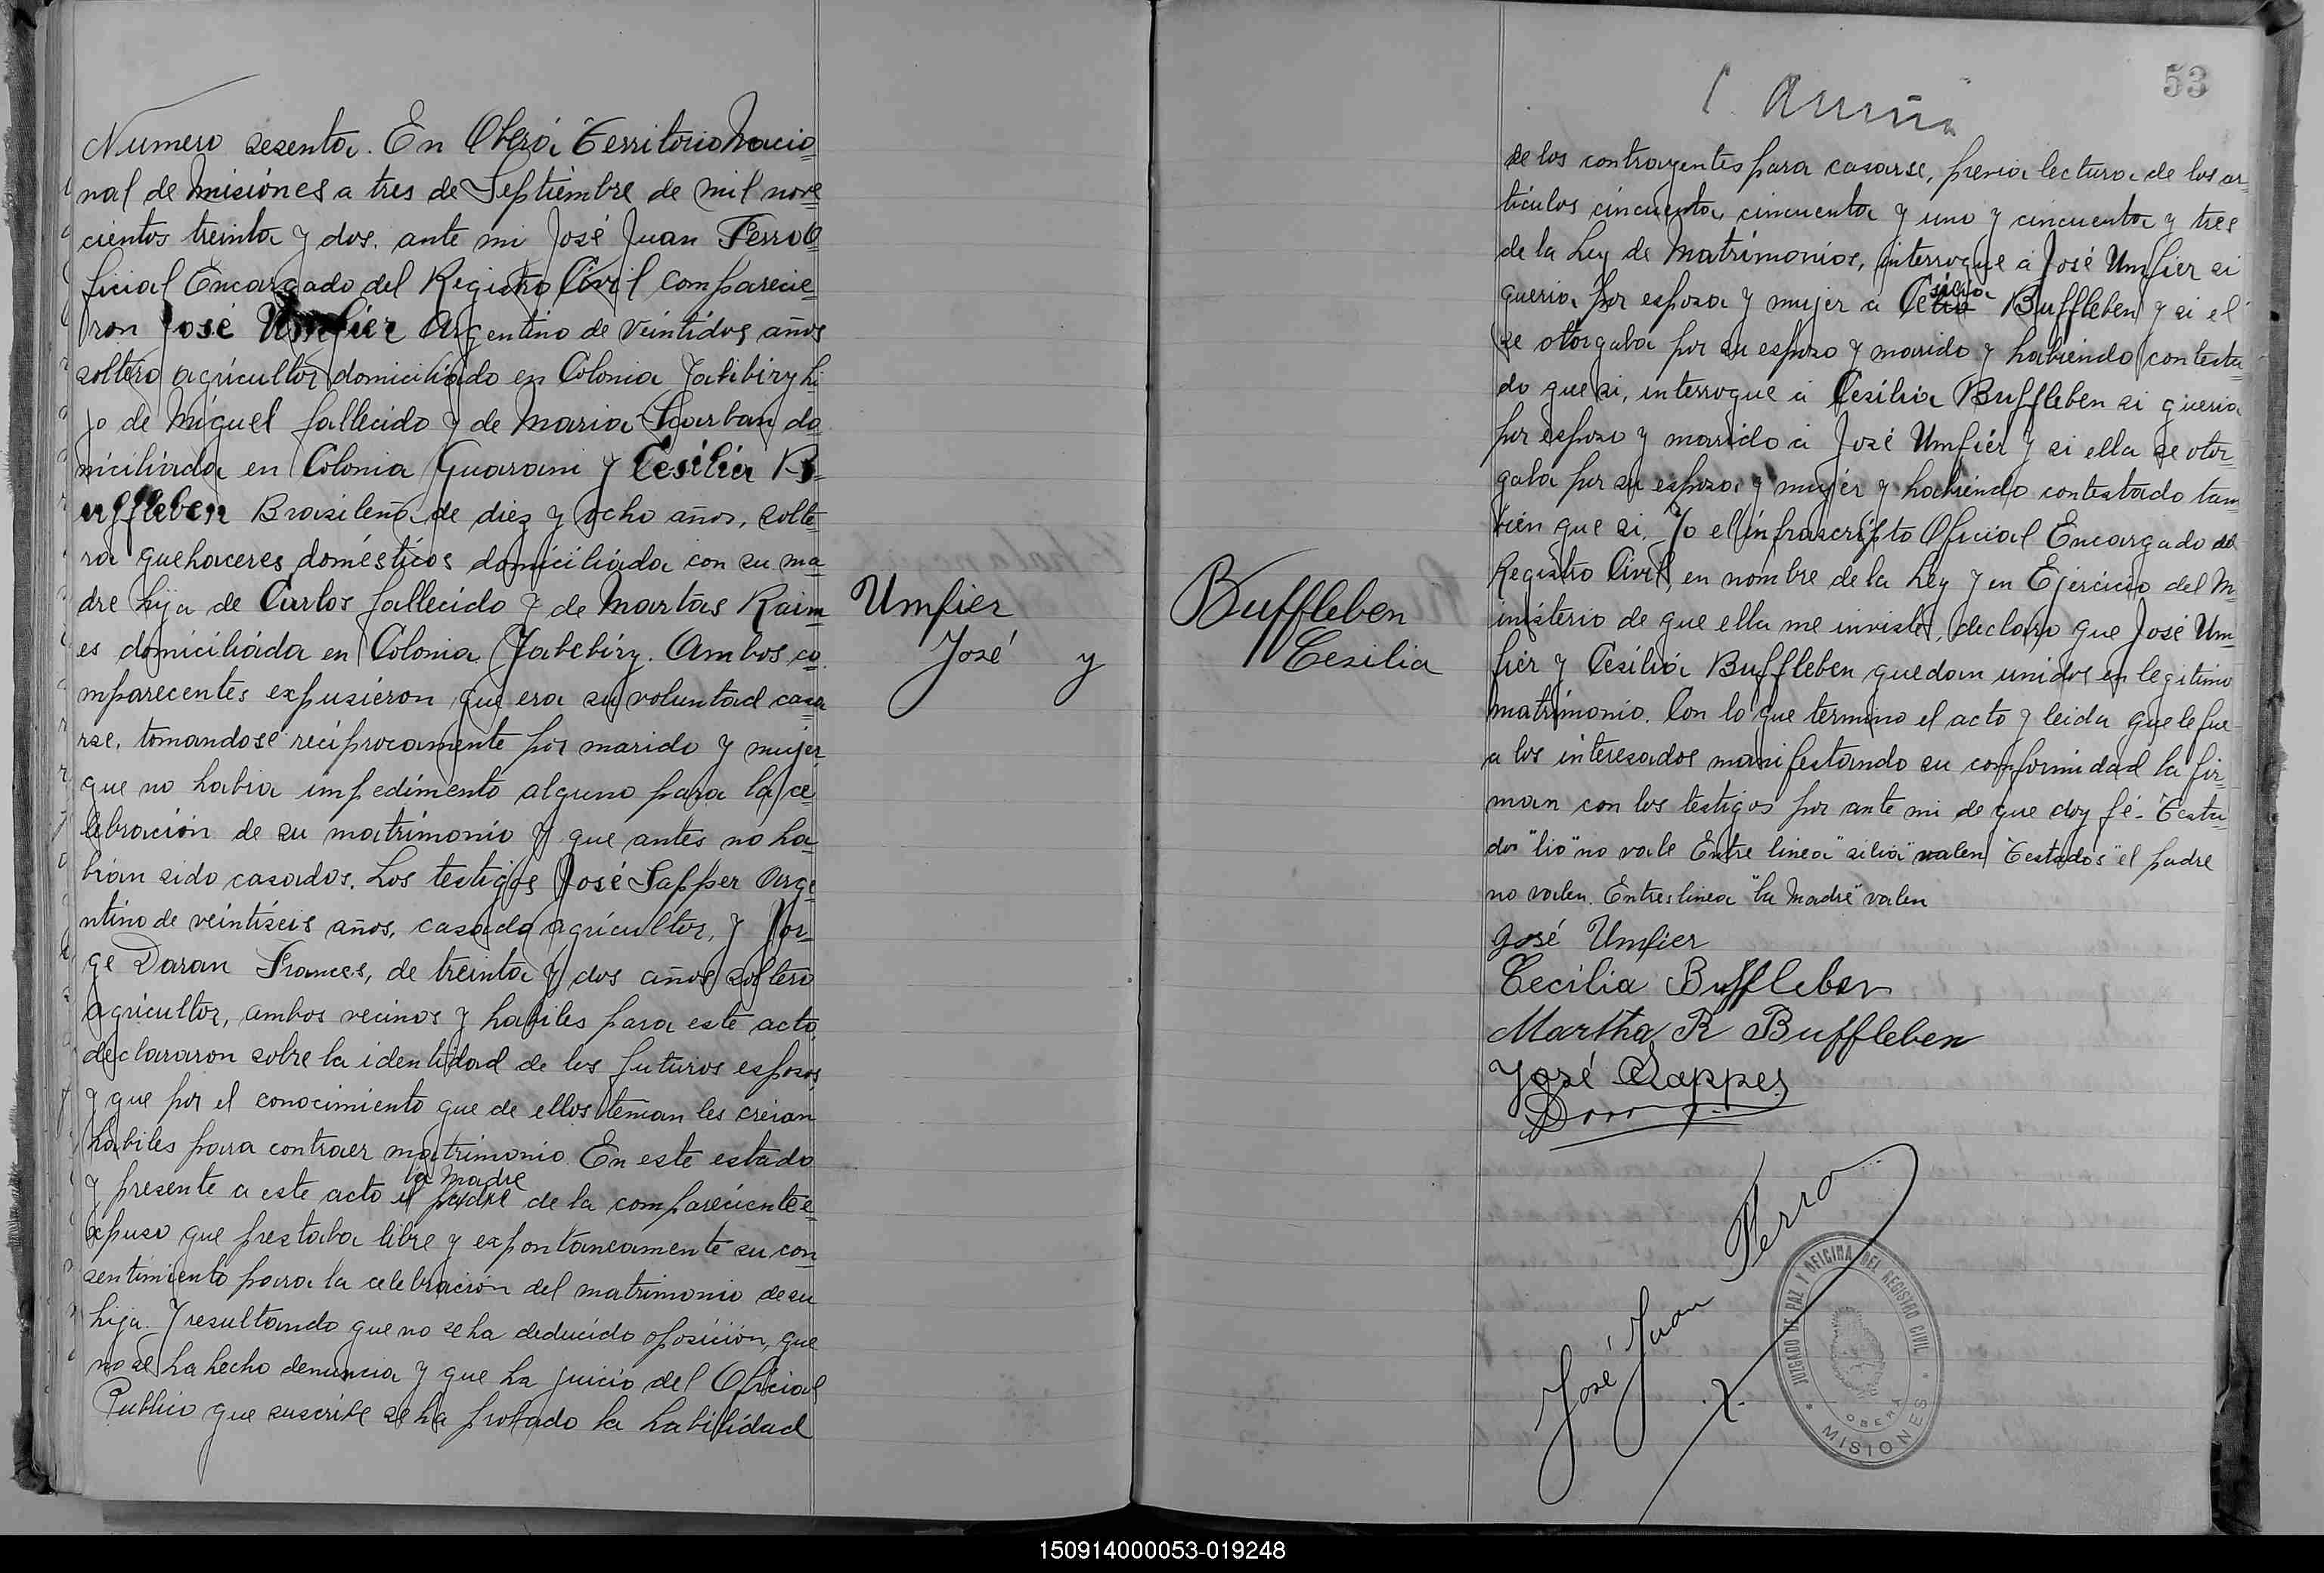 Numero sesenta. En Oberá Territorio Nacio=
nal de Misiónes a tres de Septiémbre de mil nove
cientos treinta y dos. ante mi José Juan Ferro O=
ficial Encargado del Registro Civil comparecie=
ron José Umfier Argentino de veintidos años
soltero agricultor domiciliádo en Colonia Jabibiry hi
jo de Miguel fallecido y de Maria do=
miciliáda en Colonia Guarani y Cesilia B=
uffleben Brasileña de diez y ocho años, solte=
ra quehaceres doméstícos domiciliáda con su ma=
dre hija de Carlos fallecido y de Martas Raim=
es domiciliáda en Colonia Jabebiry. Ambos co=
mparecentes expusiéron que era su voluntad casa=
rse, tomandose reciprocamente por marido y mujer,
que no habia impedimento alguno para la ce=
lebración de su matrimonio y que antes no ha=
bian sido casados. Los testigos José Sapper Arge
ntino de veintiseis años, casado agricultor, y Jor=
ge Daran Frances, de treinta y dos años soltero
agricultor, ambos vecinos y habiles para este acto,
declararon sobre la identidad de los futuros esposos
y que por el conocimiento que de ellos tenian les creian
habiles para contraer matrimonio. En este estado
la Madre
y presente a este acto el padre de la compareciente e=
xpuso que prestaba libre y espontáneamente su con=
sentimiento para la celebración del matrimonio de su
hija. Y resultando que no se ha deducido oposición, que
no se ha hecho denuncia y que ha juicio del Oficial
Publico que suscribe se ha probado la habilidad
Umfier
José y
Buffleben
Cesilia
53
de los contrayentes para casarse, previa lectura de los ar=
tículos cincuenta, cincuenta y uno y cincuenta y tres
de la Ley de Matrimonios, interrogue a José Umfier si
silia
queria por esposa y mujer a Celia Buffleben y si el
se otorgaba por su esposo y marido y habiendo contesta=
do que si, interrogue a Cesilia Buffleben si queria
por esposo y marido a José Umfier y si ella se otor=
gaba por su esposa y mujer y habiendo contestado tam
bién que si. Yo el infrascripto Oficial Encargado del
Registro Civil, en nombre de la Ley y en Ejercicio del M=
inisterio de que ella me inviste, declaro que José Um=
fier y Cesilia Buffleben quedan unidos en legitimo
matrimonio. Con lo que termino el acto y leida que le fue
a los interesados manifestando su conformidad la fir=
man con los testigos por ante mi de que doy fé. Testa=
do "lia" no vale Entre linea "silia" valen Testados "el padre
no valen. Entres linea "la Madre" valen
José Umfier
Cecilia Buffleben
Martha R Buffleben
José Sapper
José Juan Ferro
JUZGADO DE PAZ Y OFICINA DEL REGISTRO CIVIL
OBERÁ
MISIONES
150914000053-019248